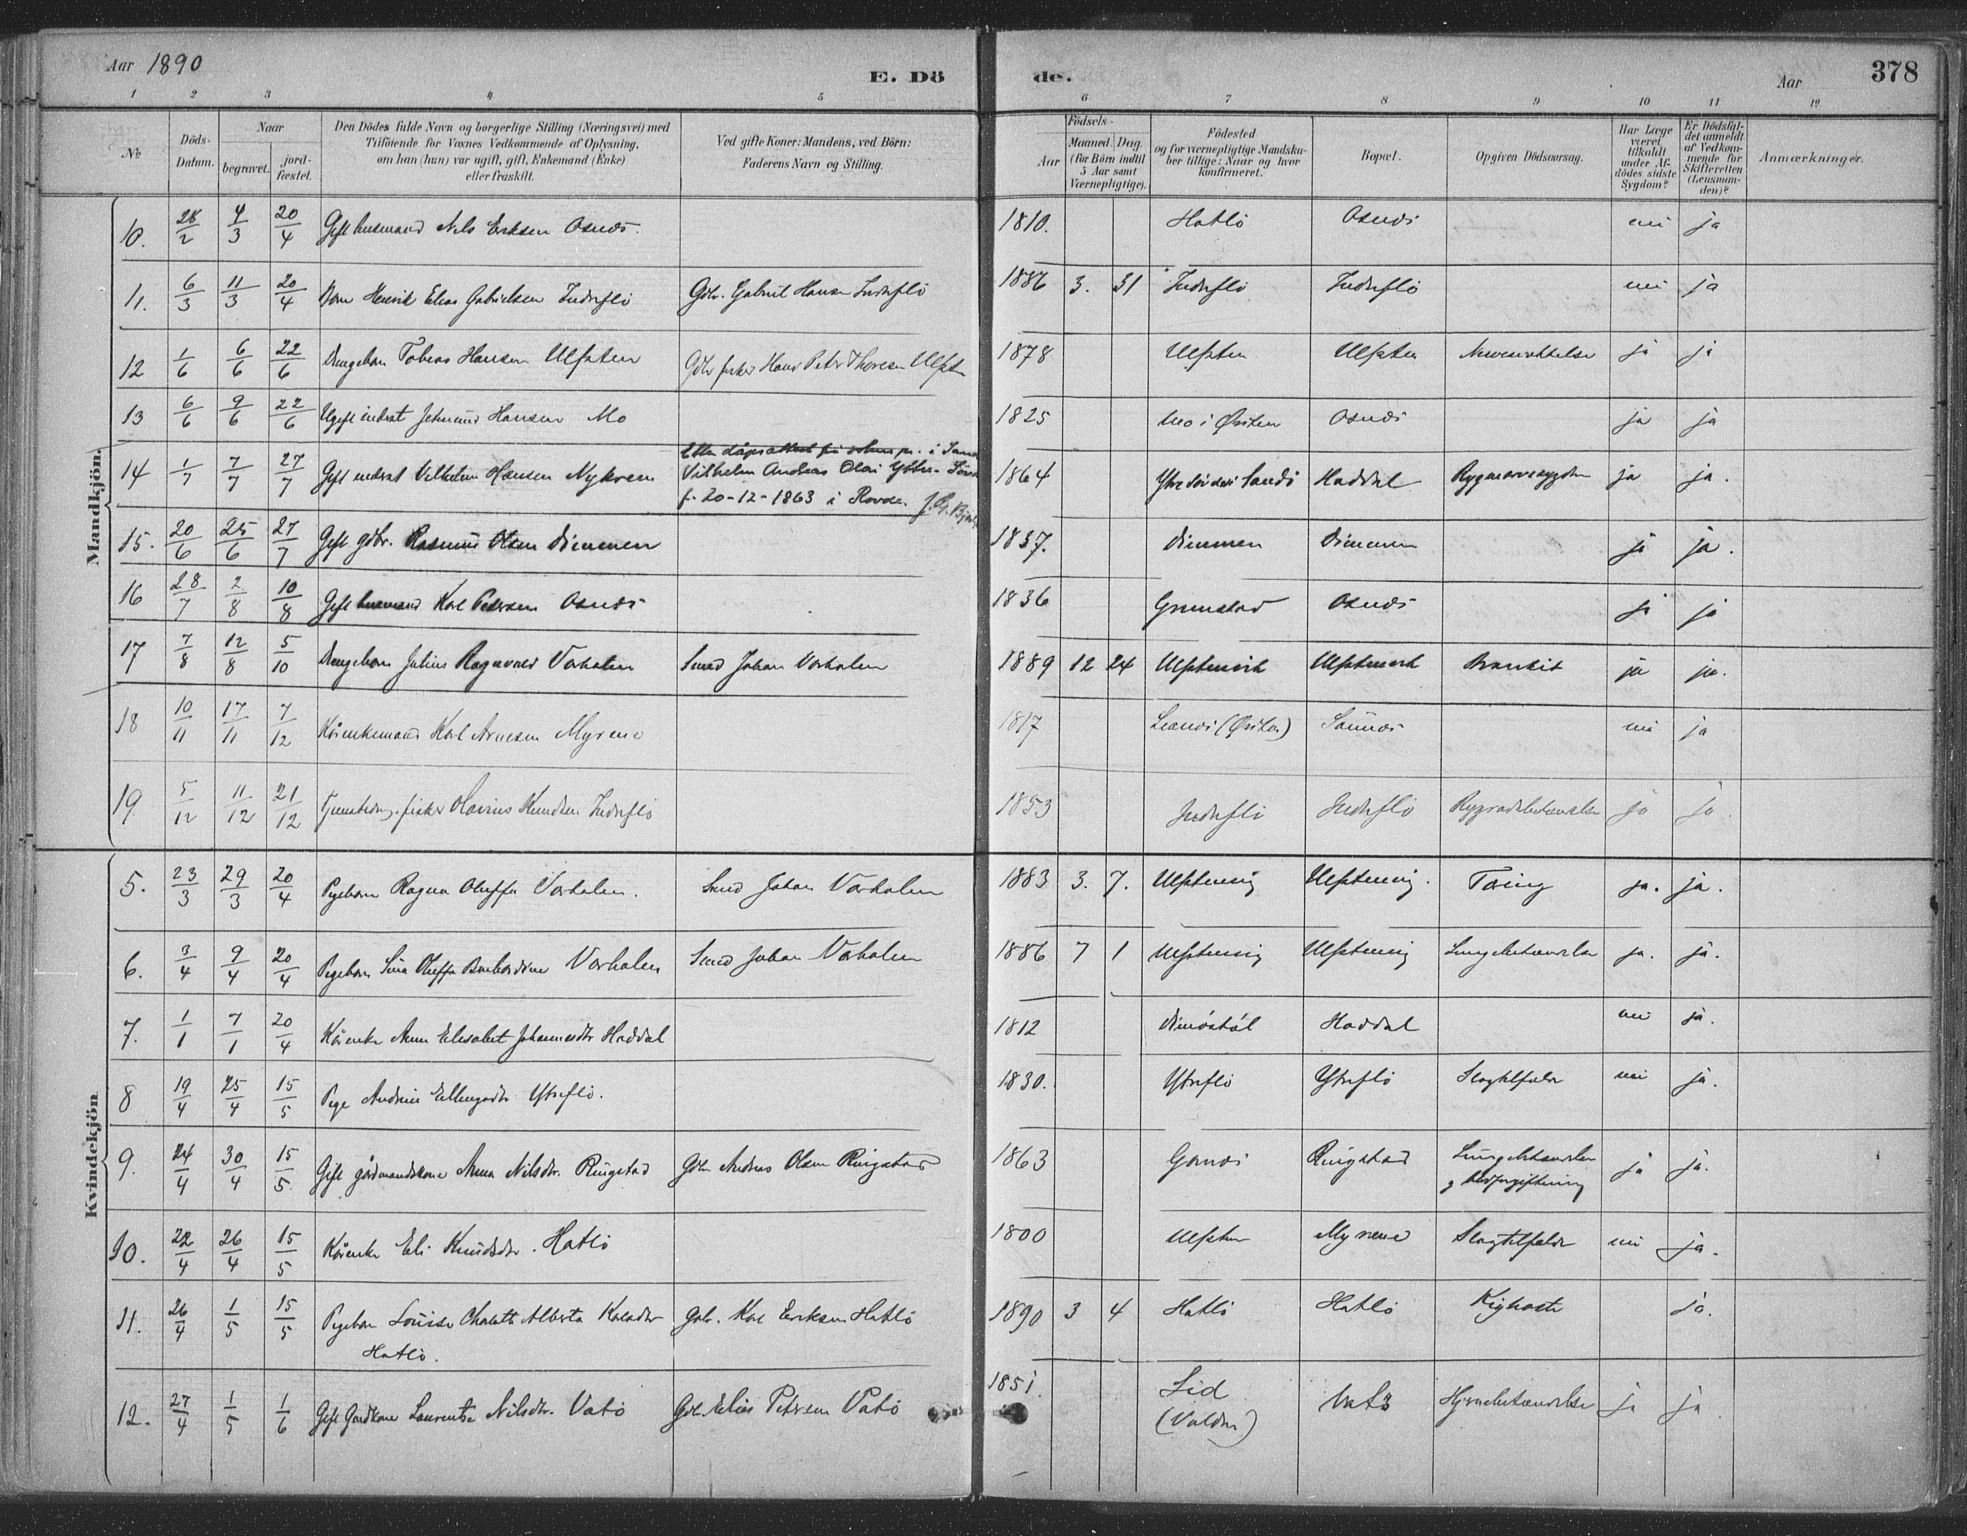 Aar 1890 E. Dö de. Aar 378
1 2 3 4 5 6 7 8 9 10 11 12
No Döds-Datum. Naar begravet. jord-fæstet. Den Dödes fulde Navn og borgerlige Stilling (Næringsvei) med Tilföiende for Voxnes Vedkommende af Oplysning, om han (hun) var ugift, gift, Enkemand (Enke) eller fraskilt. Ved gifte Koner: Mandens, ved Börn: Faderens Navn og Stilling. Födsels- Aar Maaned. Dag. (for Börn indtil 5 Aar samt Værnepligtige). Födested og for værnepligtige Mandskaber tillige: Naar og hvor konfirmeret. Bopæl. Opgiven Dödsaarsag. Har Læge været tilkaldt under Afdödes sidste Sygdom? Er Dödsfaldet anmeldt af Vedkommende for Skifteretten (Lensmanden)? Anmærkninger.
Mandkjön.
10. 28/2 4/3 20/4 Gift husmand Nils Eriksen Osnæs. 1810. Hatlö Osnæs nei ja
11. 6/3 11/3 20/4 Barn Henrik Elias Gabrielsen Indreflö Gbr. Gabriel Hansen Indreflö 1886 3. 31 Indreflö Indreflö nei ja
12 1/6 6/6 22/6 Drengebarn Tobias Hansen Ulfsten Gbr fisker Hans Peter Thoresen Ulfsten 1878 Ulfsten Ulfsten ja ja
13 6/6 9/6 22/6 Ugift inderst Jetmund Hansen Mo 1825 Mo i Örsten Osnæs ja ja
14 1/7 7/7 27/7 Gift inderst Vilhelm Hansen Nykrem Etter dåpsattest i
Vilhelm Andreas Olai Ytter-
f. 20-12-1863 i Rovde. 1864 Haddal ja ja.
15. 20/6 25/6 27/7 Gift gbr. Rasmus Olsen Dimmen 1837. Dimmen Dimmen ja ja.
16 28/7 2/8 10/8 Gift husmand Karl Pedersen Osnæs 1836 Grimstad Osnæs ja ja
17 7/8 12/8 5/10 Drengebarn Julius Ragnvald Varhalen Smed Johan Varhalen 1889 12 24 Ulfstenvik Ulfstenvik Bronkit ja ja.
18 10/11 17/11 7/12 Kårenkemand Karl Arnesen Myrene 1817 (Örsten) Saunæs nei ja
19 5/12 11/12 21/12 fisker Knudsen Indreflö 1853 Indreflö Indreflö Rygradsbetændelse ja ja.
Kvindekjön
5. 23/3 29/3 20/4 Pigebarn Ragna Oluffa Varhalen. Smed Johan Varhalen 1883 3. 7. Ulfstenvig Ulfstenvig. Tæring ja. ja.
6. 3/4 9/4 20/4 Pigebarn Sina Oluffa Varhalen Smed Johan Varhalen 1886 7 1 Ulfstenvig Ulfstenvig Lungebetændelse ja. ja.
7. 1/1 7/1 20/4 Kårenke Anne Elisabet Johannesdtr Haddal 1812 Haddal nei ja.
8 19/4 25/4 15/5 Pige Ellingsdtr Ytreflö. 1830. Ytreflö Ytreflö Slagtilfælde nei ja.
9. 24/4 30/4 15/5. Gift gårdmandskone Anna Nilsdtr. Ringstad Gbr Andreas Olsen Ringstad 1863 Garnæs Ringstad Lungebetændelse
og blodforgiftning ja ja.
10. 22/4 26/4 15/5 Kårenke Eli Knudsdtr. Hatlö 1800 Ulfsten Myrene Slagtilfælde nei ja.
11. 26/4 1/5 15/5 Pigebarn Louise Charlotte Alberta Karlsdtr
Hatlö. Gbr. Karl Eriksen Hatlö 1890 3 4 Hatlö Hatlö Kighoste ja.
12. 27/4 1/5 1/6 Gift Gardkone Laurentse Nilsdtr. Vatö Gbr. Elias Petersen Vatö 1851. Lid
(Volden) Vatö Hjernebetændelse ja ja